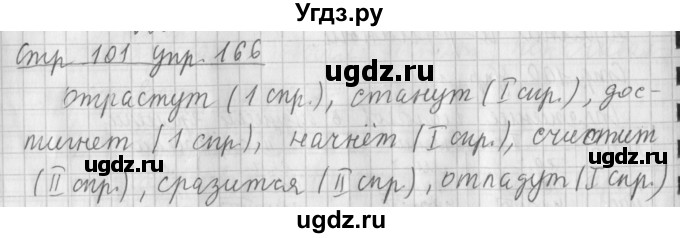 Угdз.ру
Стр 101 упр. 166
отрастут (1 спр.), станут (I спр.), дос-
тигнет (1 спр), начнёт (I спр.), счистит
(II спр.), сразится (II спр), отпадут (I спр.)
ugdz.ru
ugdz.ru
ugdz.ru
ugdz.ru
ugdz.ru